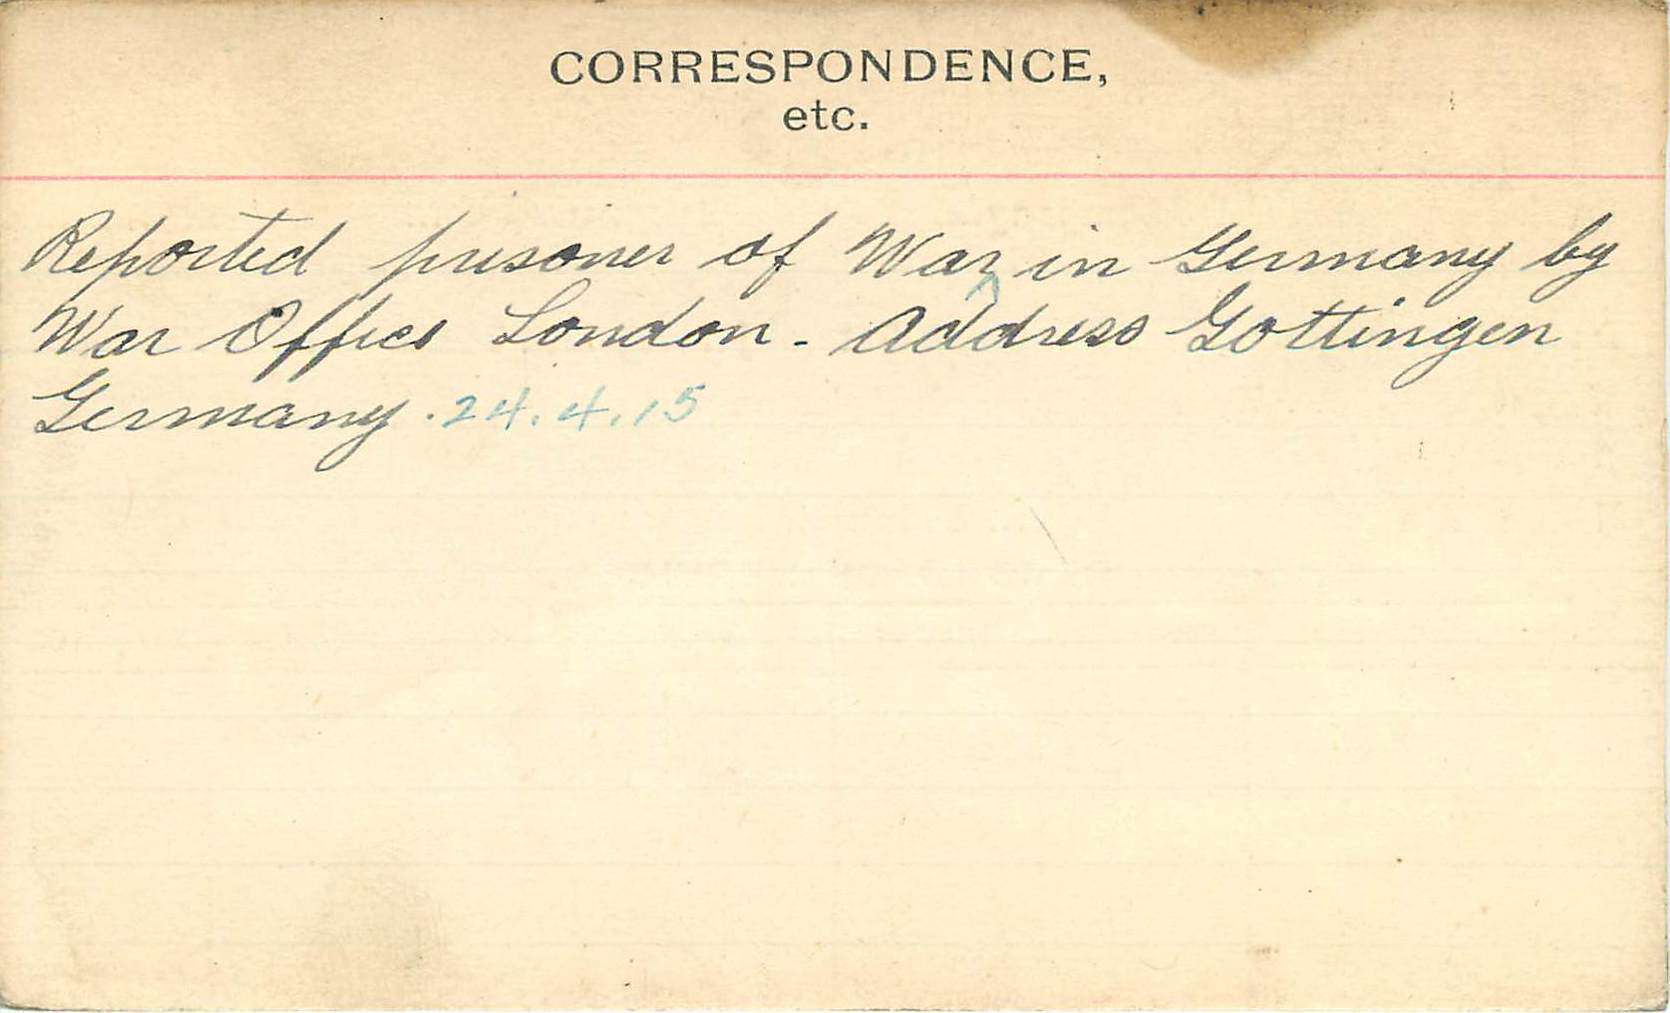 CORRESPONDENCE,
etc.
Reported prisoner of War in Germany by
War Office London - Address Gottingen
Germany . 24.4.15